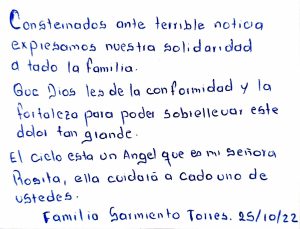 Consternados ante terrible noticia
expresamos nuestra solidaridad
a toda la familia.
Que Dios les de la conformidad y la
fortaleza para poder sobrellevar este
dolor tan grande.
El cielo esta un Angel que es mi señora
Rosita, ella cuidará a cada uno de
ustedes.
Familia Sarmiento Torres. 25/10/22